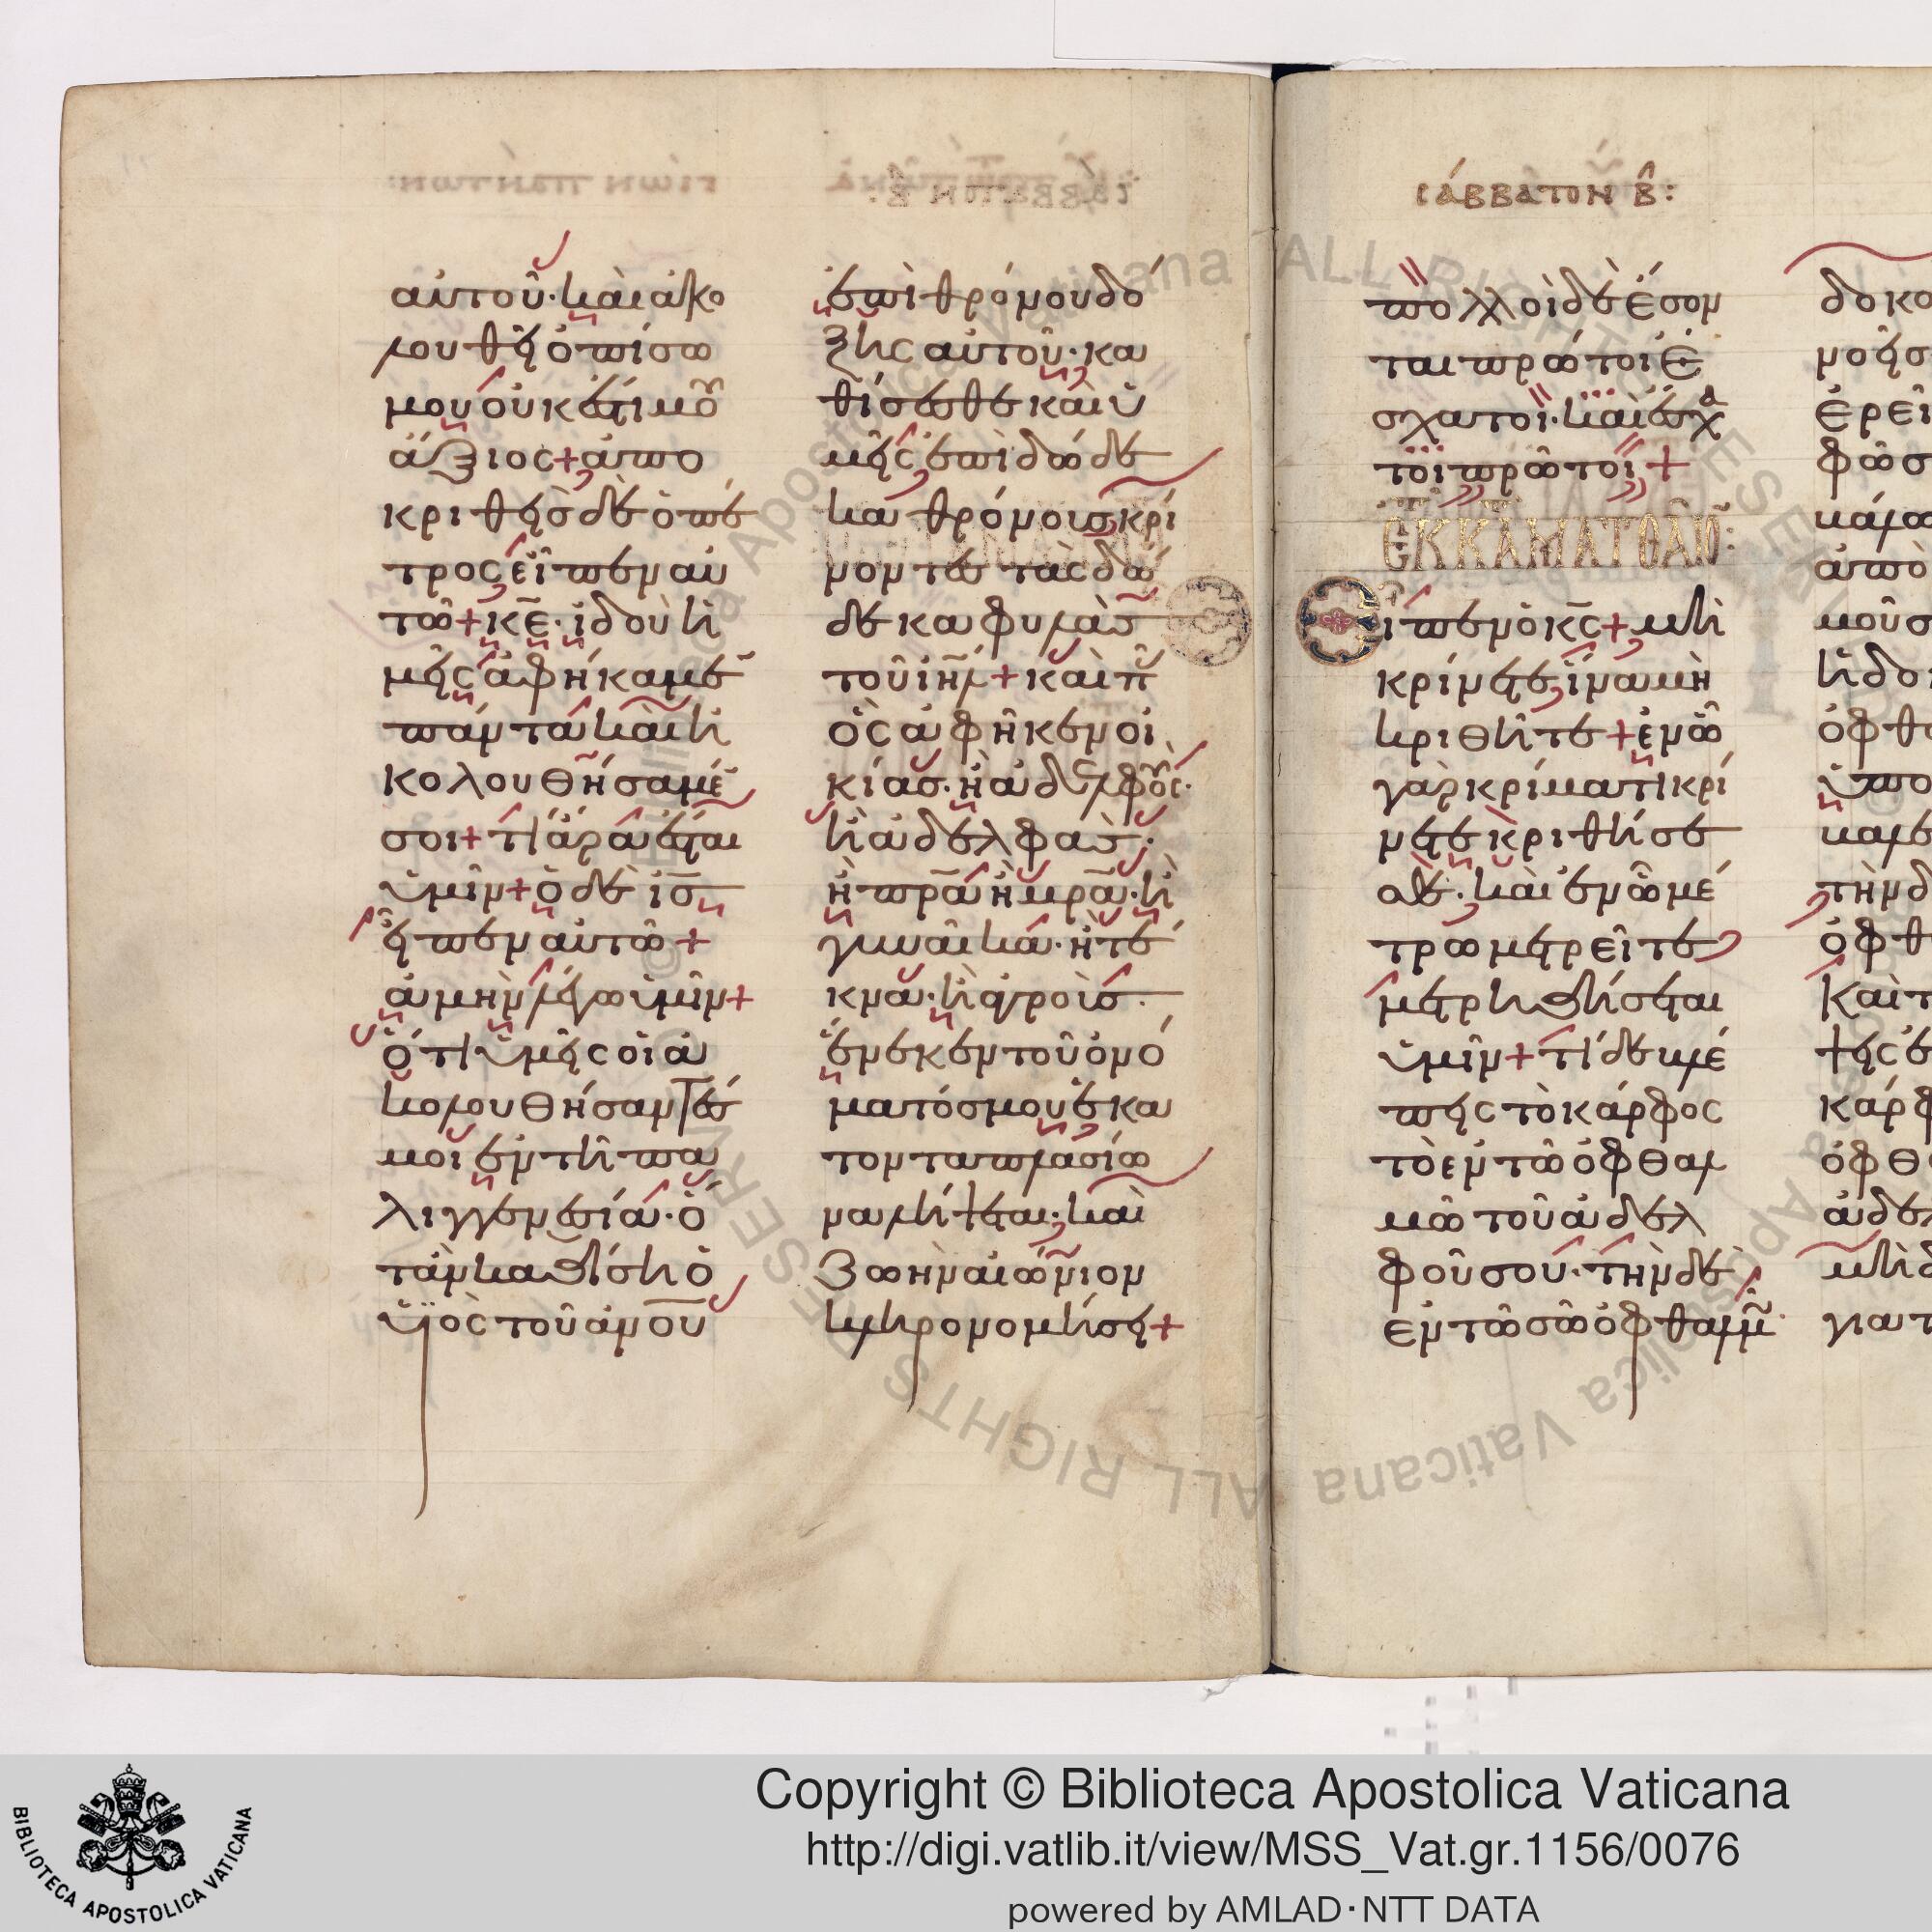 αὐτοῦ· καὶ ἀκο
λουθεῖ ὀπίσω
μου οὐκ ἔστι μου
ἄξιος + ἀπο
κριθεὶς δὲ ὁ πέ
τρος εἶπεν αὐ
τῶ + κε· ἰδοὺ ἡ
μεῖς ἀφήκαμεν
πάντα καὶ ἠ
κολουθήσαμέν
σοι + τί ἄρα ἔσται
ὑμῖν + ὁ δὲ ις
εἶπεν αὐτῶ +
ἀμὴν λέγω ὑμῖν +
ὅτι ὑμεῖς οἱ ἀ
κολουθήσαντές
μοι ἐν τῆ πα
λιγγενεσία· ὅ
ταν καθίση ὁ
ϋἱὸς τοῦ ανου
ἐπὶ θρόνου δό
ξης αὐτοῦ· κα
θίσεσθε καὶ ὑ
μεῖς ἐπὶ δώδε
κα θρόνους κρί
νοντες τὰς δώ
δεκα φυλὰς
τοῦ ιηλ + καὶ π
ὃς ἀφῆκεν οἰ
κίας· ἢ ἀδελφούς·
ἢ ἀδελφάς·
ἢ πρα ἢ μρα· ἢ
γυναῖκα· ἢ τέ
κνα· ἢ ἀγροὺς·
ἕνεκεν τοῦ ὀνό
ματός μου ἑκα
τονταπλασίο
να λήψεται· καὶ
ζωὴν αἰώνιον
κληρονομήσει +
σάββατον β:
πολλοὶ δὲ ἔσον
ται πρῶτοι ἔ
σχατοι· καὶ ἔσχα
τοι πρῶτοι +
ἐκ κατὰ ματθαῖον:
Εἶπεν ὁ κς + μὴ
κρίνετε ἵνα μὴ
κριθῆτε + ἐν ᾧ
γὰρ κρίματι κρί
νετε κριθήσε
σθε· καὶ ἐν ᾧ μέ
τρω μετρεῖτε
μετρηθήσεται
ὑμῖν + τί δὲ βλέ
πεις τὸ κάρφος
τὸ ἐν τῶ ὀφθαλ
μῶ τοῦ ἀδελ
φοῦ σου· τὴν δὲ
ἐν τῶ σῶ ὀφθαλμῶ
δοκο
ἐρεῖ
φῶ σ
κάρφ
ἀπὸ
ὀφθ
ὑπο
τὴν δ
ὀφθ
καὶ τ
κάρφ
ὀφθ
ἀδελ
μὴ δ
για τ
Copyright © Biblioteca Apostolica Vaticana
http://digi.vatlib.it/view/MSS_Vat.gr.1156/0076
powered by AMLAD·NTT DATA
BIBLIOTECA APOSTOLICA VATICANA